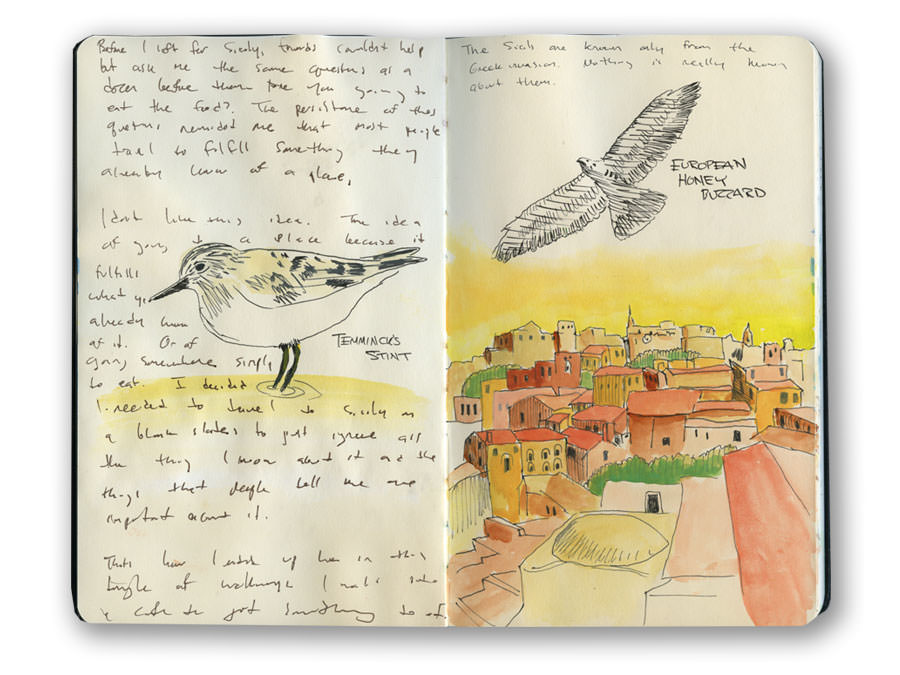 Before I left for Sicily, friends couldn't help
but ask me the same questions as a
dozen before them are you going to
eat the food?. The persistence of this
question reminded me that most people
travel to fulfill something they
already know of a place,
I dont like this idea. The idea
of going to a place because it
fulfills
what yo
already know
of it. Or of
going somewhere simply
to eat. I decided
I needed to travel to Sicily as
a blank slate to just ignore all
the thing I know about it and the
things that people tell me are
important about it.
Thats how I ended up here in this
tangle of walkways I
a cafe to get something to
TEMMINCK'S
STINT
The Sicels are known only from the
Greek invasion. Nothing is really known
about them.
EUROPEAN
HONEY
BUZZARD